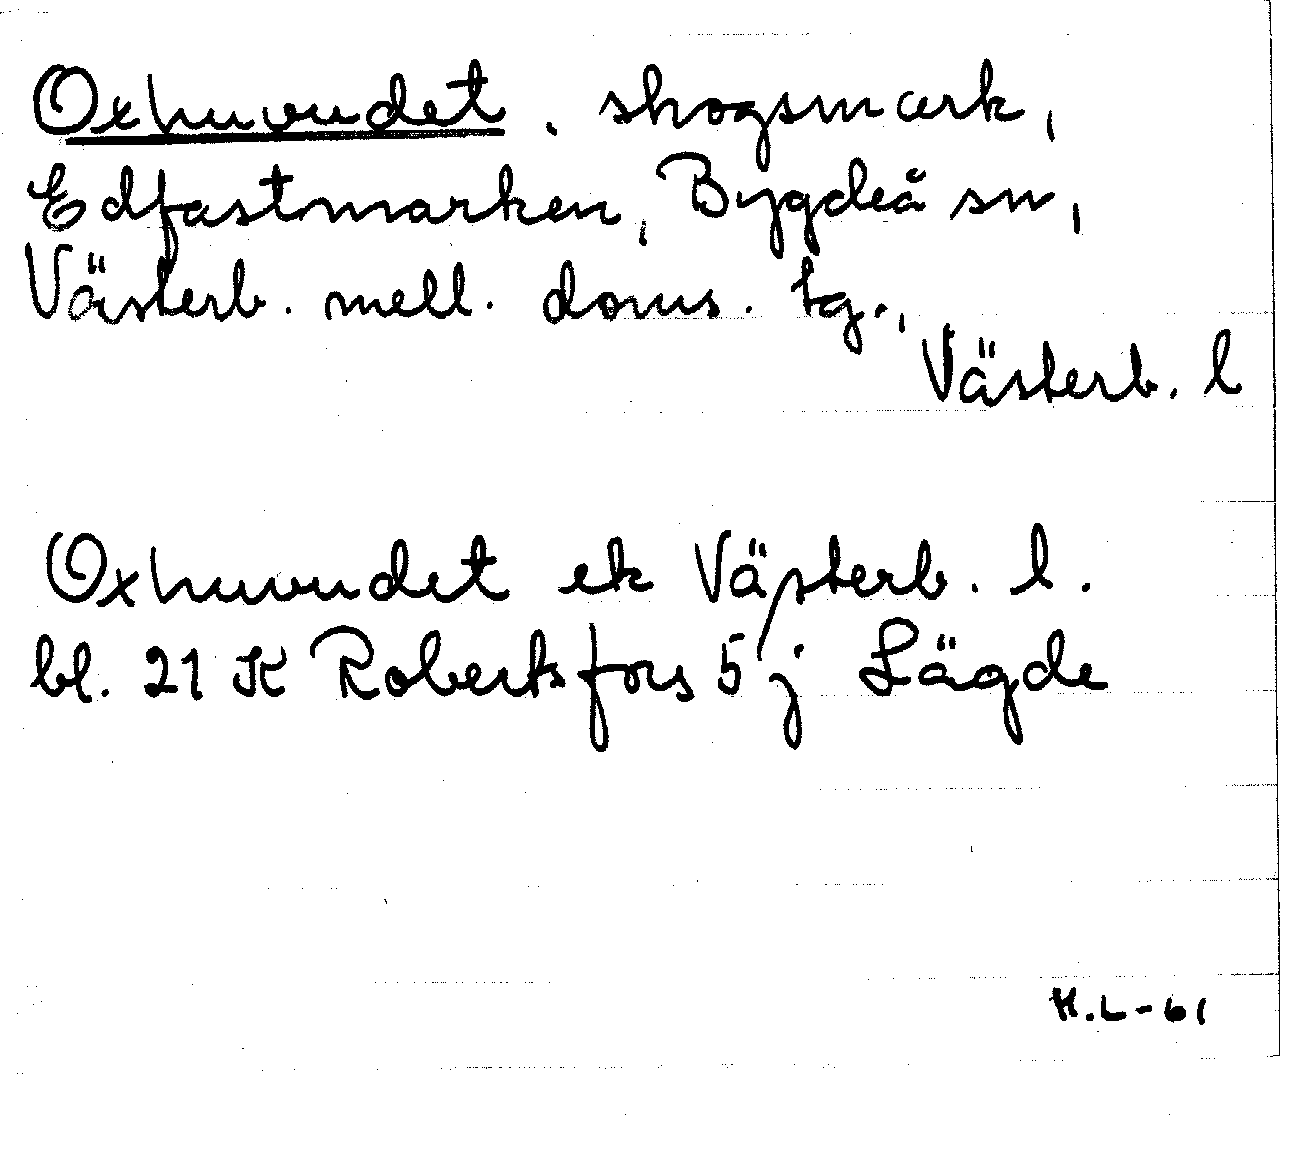 Oxhuvudet, skogsmark,
Edfastmarken, Bygdeå sn,
Västerb. mell. doms. tg.,
Västerb. l
Oxhuvudet ek Västerb. l.
bl. 21 K Robertsfors 5 j Lägde
H.L-61